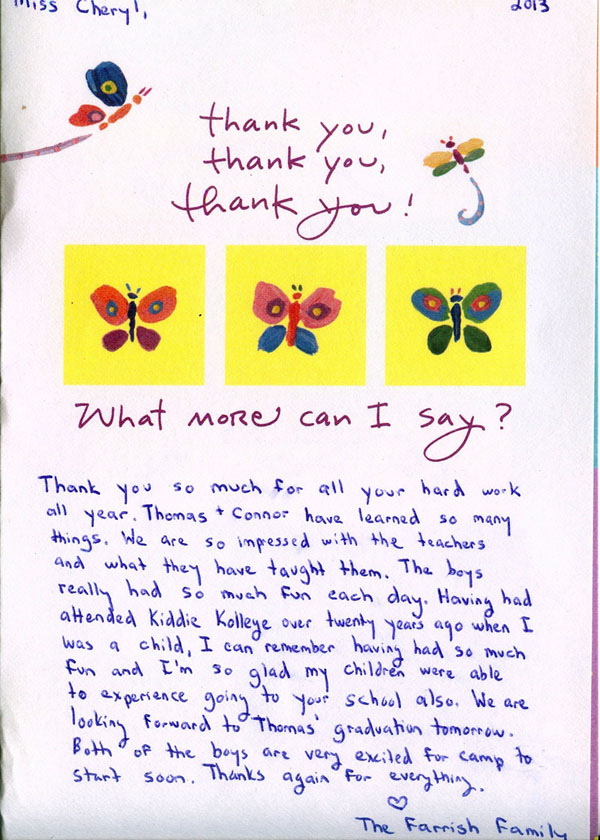 Miss Cheryl, 2013
thank you,
thank you,
thank you!
What more can I say?
Thank you so much for all your hard work
all year. Thomas + Connor have learned so many
things. We are so impressed with the teachers
and what they have taught them. The boys
really had so much fun each day. Having had
attended Kiddie Kollege over twenty years ago when I
was a child, I can remember having had so much
fun and I'm so glad my children were able
to experience going to your school also. We are
looking forward to Thomas' graduation tomorrow.
Both of the boys are very excited for camp to
start soon. Thanks again for everything.
The Farrish Family